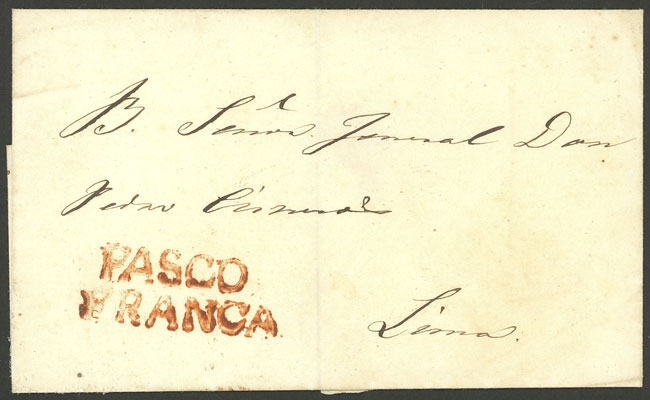 B. Señor Jeneral Don
Pedro Cisneros
PASCO
FRANCA
Lima.